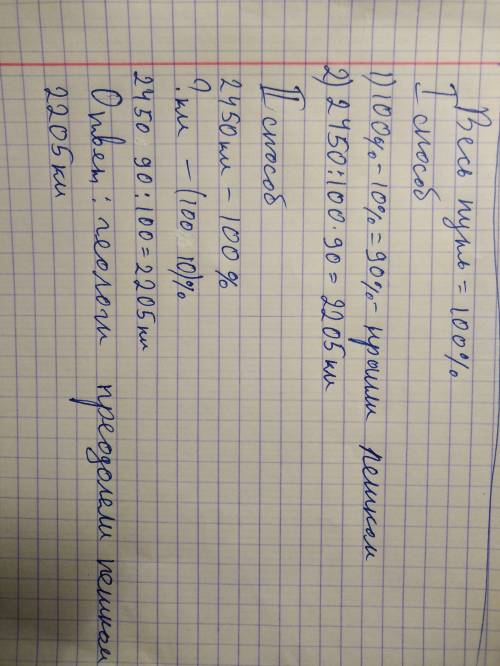 Весь путь = 100%
I способ
1) 100% - 10% = 90% - прошли пешком
2) 2450 : 100 · 90 = 2205 км
II способ
2450 км - 100%
? км - (100 10)%
2450 90 : 100 = 2205 км
Ответ: геологи преодолели пешком
2205 км